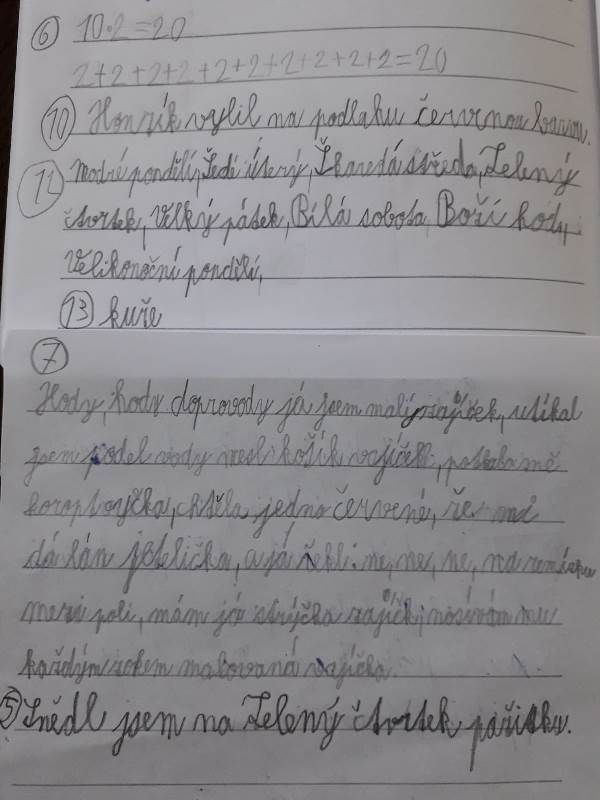 6 10·2=20
2+2+2+2+2+2+2+2+2+2=20
10 Honzík vylil na podlahu červenou barvu.
12 Modré pondělí, Šedé úterý, Škaredá středa, Zelený
čtvrtek, Velký pátek, Bílá sobota Boží hody,
Velikonoční pondělí,
13 kuře
7
Hody, hody doprovody já jsem malí zajíček, utíkal
jsem podel vody nesl košík vajíček, potkala mě
koroptvička, chtěla jedno červené, že mi
dá lán jetelička, a já řekl: ne, ne, ne, na remízku
mezi poli, mám já strýčka zajíčk, nosívám mu
každým rokem malovaná vajíčka.
5 Snědl jsem na Zelený čtvrtek pažitku.